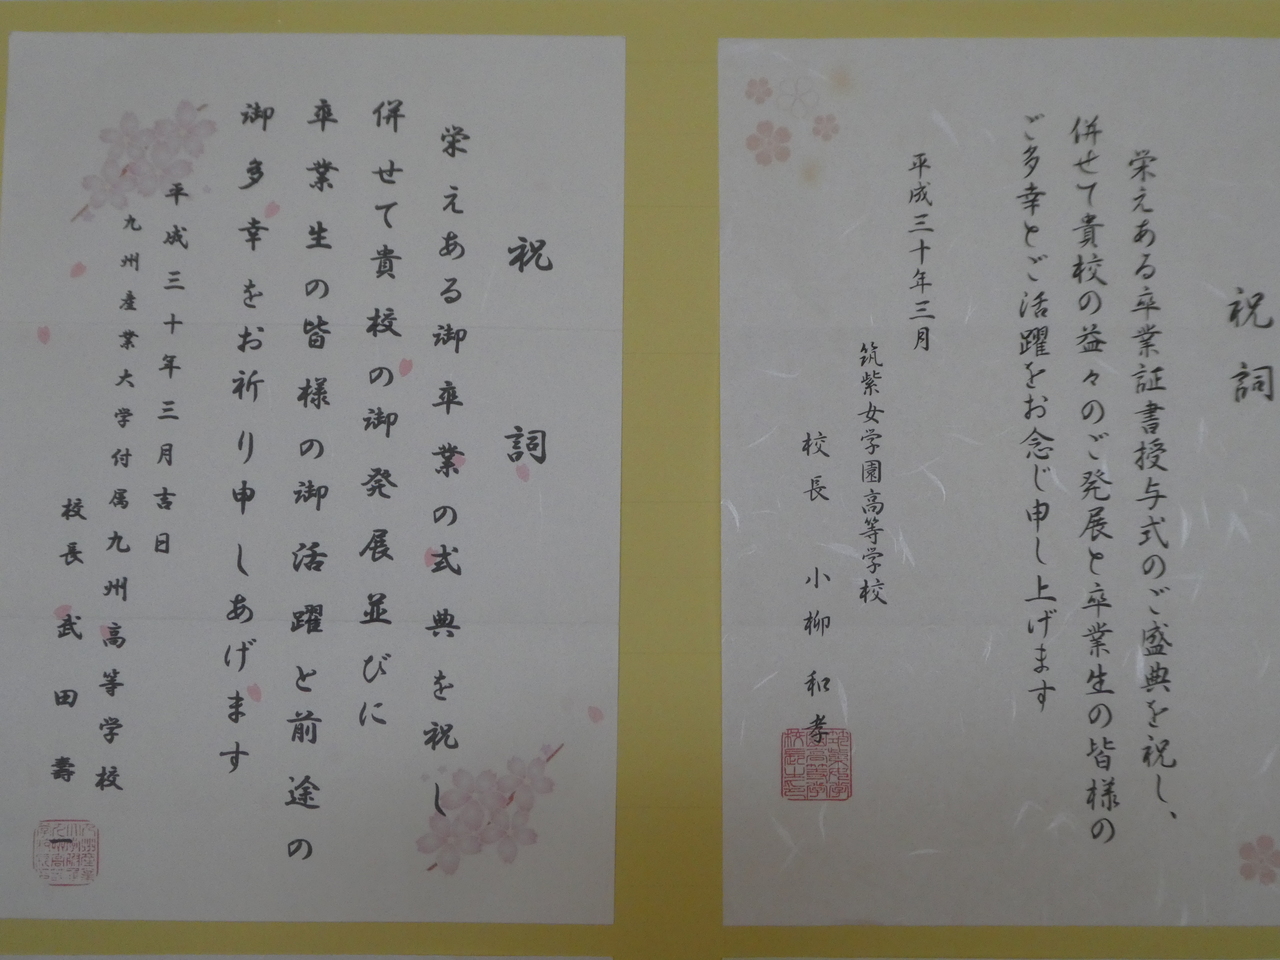 祝詞
栄えある卒業証書授与式のご盛典を祝し、
併せて貴校の益々のご発展と卒業生の皆様の
ご多幸とご活躍をお念じ申し上げます
平成三十年三月
筑紫女学園高等学校
校長 小柳和孝
祝詞
栄えある御卒業の式典を祝し
併せて貴校の御発展並びに
卒業生の皆様の御活躍と前途の
御多幸をお祈り申しあげます
平成三十年三月吉日
九州産業大学付属九州高等学校
校長 武田壽一